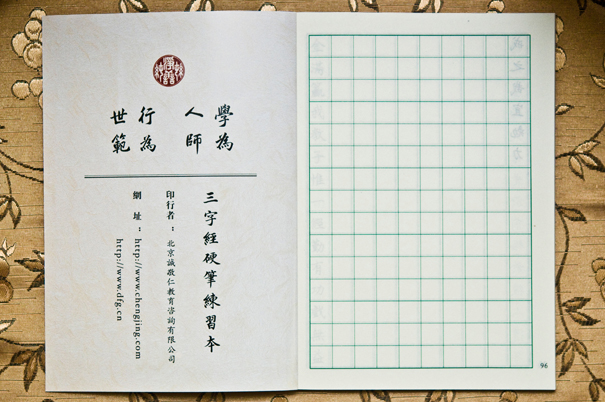 學為
人師
行為
世範
三字經硬筆練習本
印行者：北京誠敬仁教育咨詢有限公司
網址：http://www.chengjing.com
http://www.dfg.cn
96